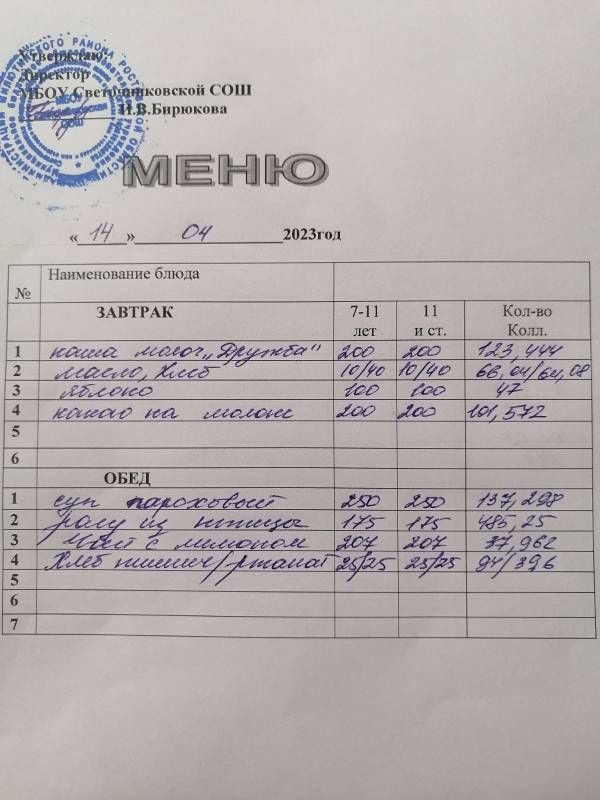 Утверждаю:
Директор
МБОУ Светочниковской СОШ
И.В.Бирюкова
МЕНЮ
« 14 » 04 2023год
№ Наименование блюда
ЗАВТРАК 7-11 лет 11 и ст. Кол-во Колл.
1 каша молоч „Дружба" 200 200 123,444
2 масло, хлеб 10/40 10/40 66,04/64,08
3 яблоко 100 100 47
4 какао на молоке 200 200 101,572
5
6
ОБЕД
1 суп гороховый 250 250 137,298
2 рагу из птицы 175 175 485,25
3 Чай с лимоном 207 207 37,962
4 Хлеб пшенич/ржаной 25/25 25/25 94/396
5
6
7